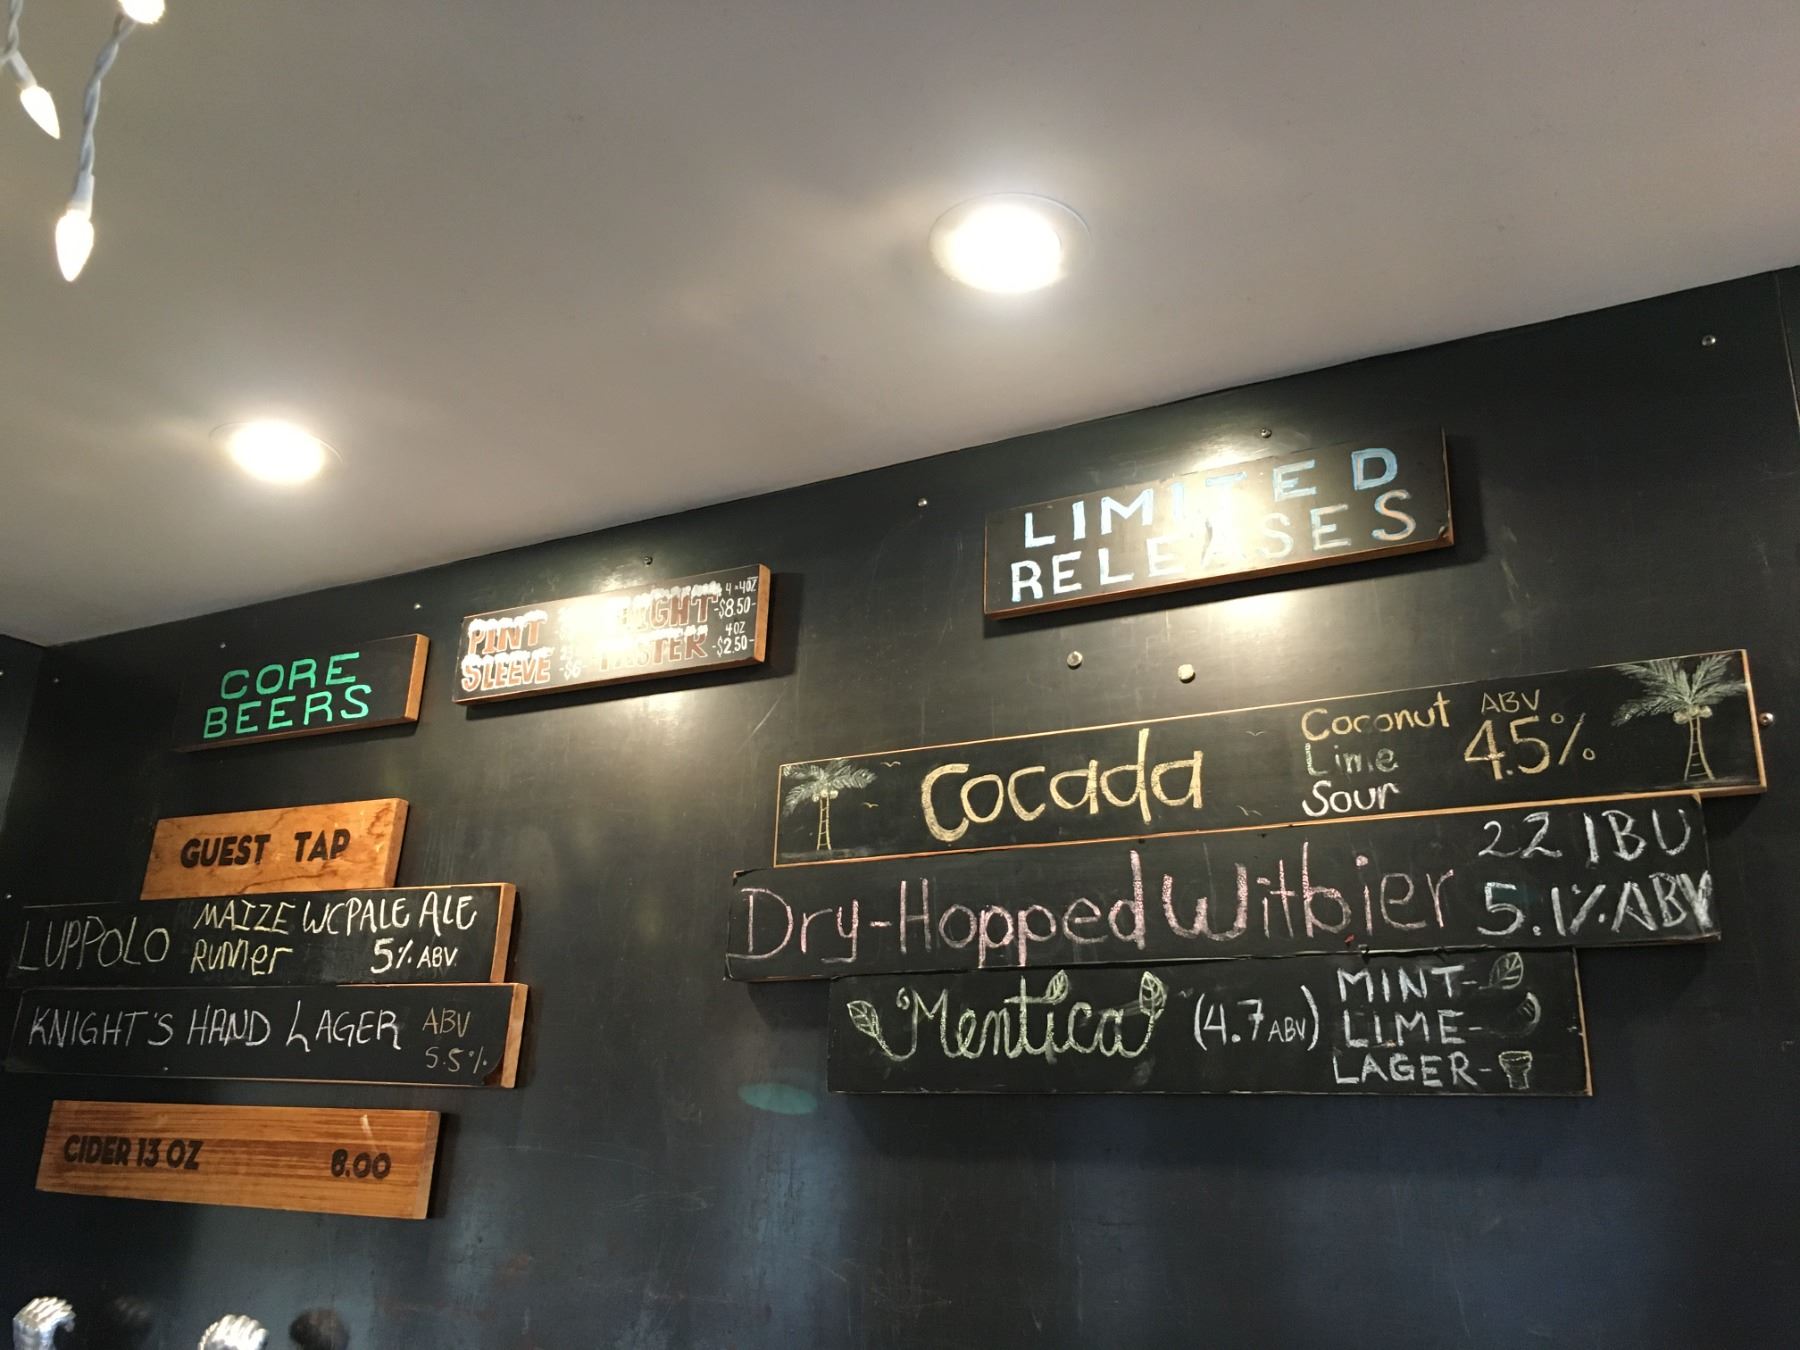 CORE
BEERS
PINT
SLEEVE
-$6-
4 × 4OZ
FLIGHT -$8.50-
4OZ
TASTER -$2.50-
LIMITED
RELEASES
GUEST TAP
LUPPOLO
MAIZE WC PALE ALE
RUNNER 5% ABV
KNIGHT'S HAND LAGER
ABV
5.5%
CIDER 13 OZ 8.00
Cocada
Coconut
Lime
Sour
ABV
4.5%
Dry-Hopped Witbier
22 IBU
5.1% ABV
Mentica
(4.7 ABV)
MINT-
LIME-
LAGER-